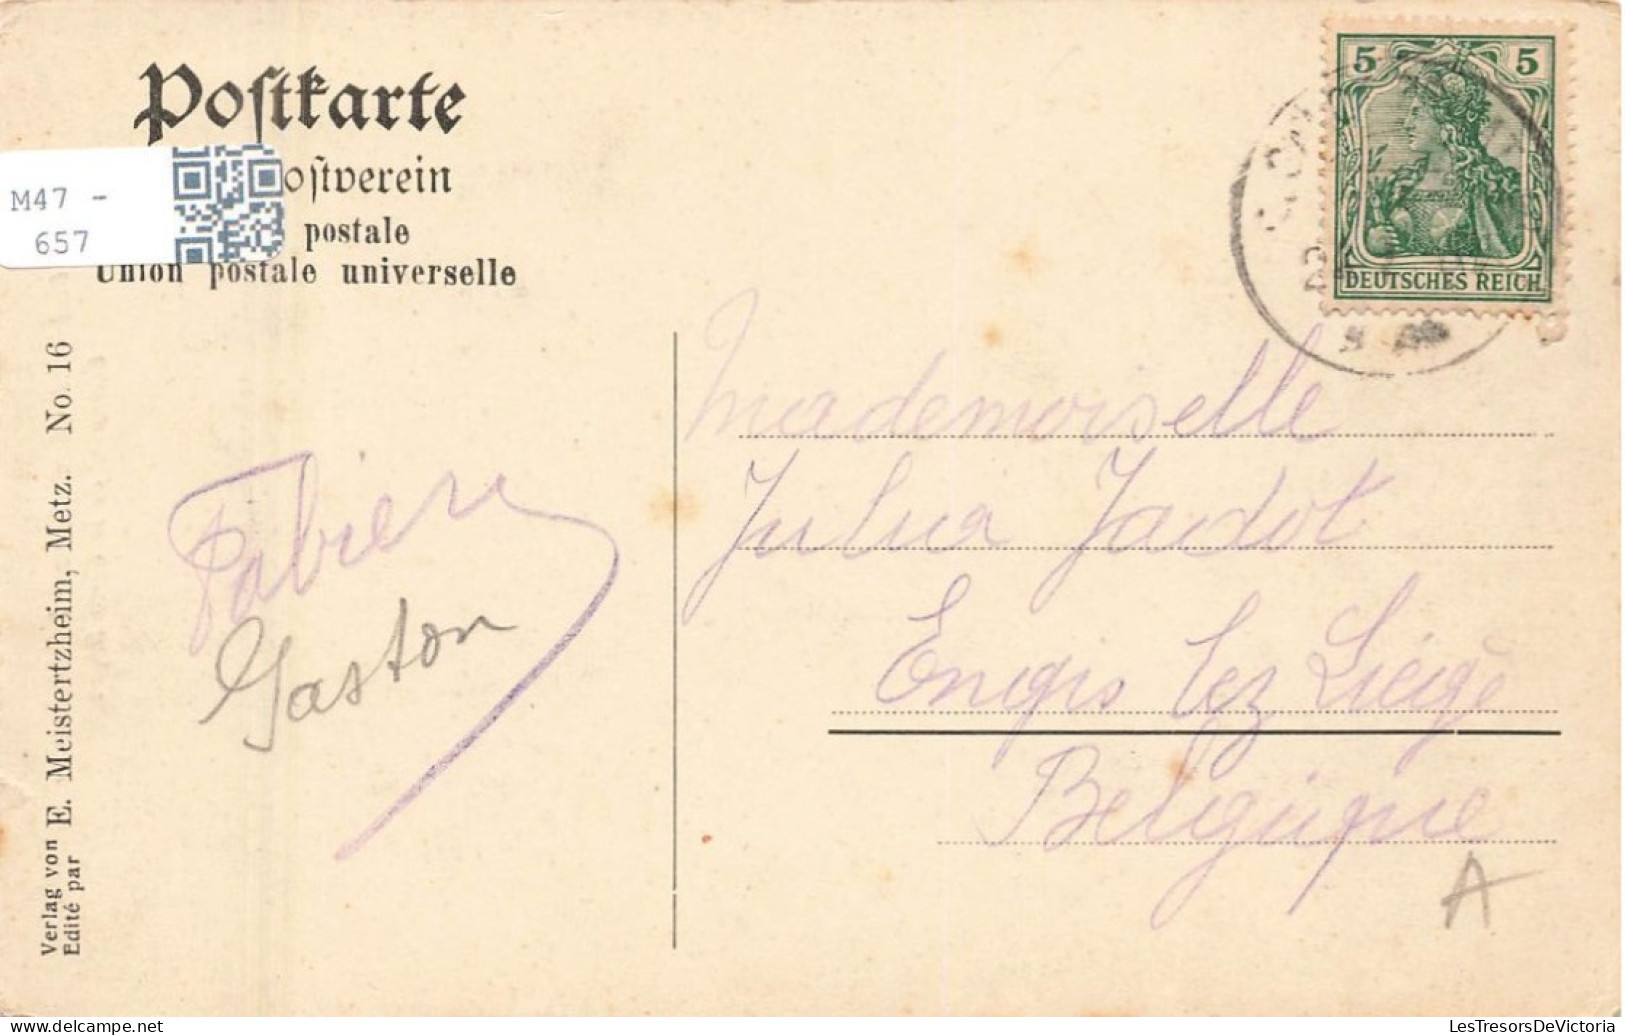 Postkarte
M47 -
657
postverein
postale
Union postale universelle
5 5
DEUTSCHES REICH
Verlag von
Edité par
E. Meistertzheim, Metz. No. 16
Mademoiselle
Julia Jadot
Engis lez Liège
Belgique
Fabien
Gaston
A
delcampe.net
LesTresorsDeVictoria